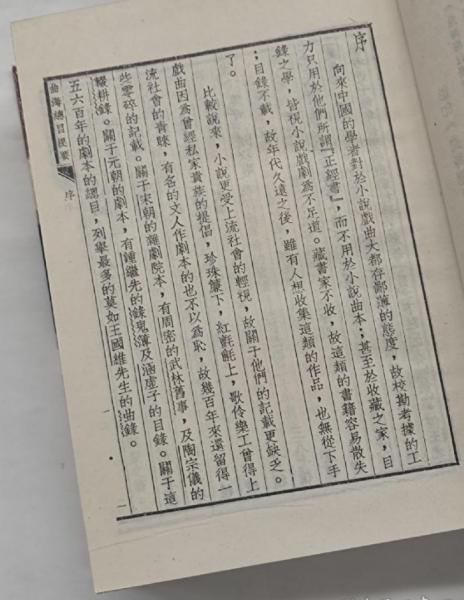 序
向來中國的學者對於小說戲曲大都存鄙薄的態度，故校勘考據的工
力只用於他們所謂『正經書』，而不用於小說曲本；甚至於收藏之家，目
錄之學，皆視小說戲劇為不足道。藏書家不收，故這類的書籍容易散失
；目錄不載，故年代久遠之後，雖有人想收集這類的作品，也無從下手
了。
比較說來，小說更受上流社會的輕視，故關于他們的記載更缺乏。
戲曲因為曾經私家貴族的提倡，珍珠簾下，紅氍毹上，歌伶樂工曾得上
流社會的青睞，有名的文人作劇本的也不以為恥，故幾百年來還留得一
些零碎的記載。關于宋朝的雜劇院本，有周密的武林舊事，及陶宗儀的
輟耕錄。關于元朝的劇本，有鍾繼先的錄鬼簿及涵虛子的目錄。關于這
五六百年的劇本的總目，列舉最多的莫如王國維先生的曲錄。
曲海總目提要 序 一